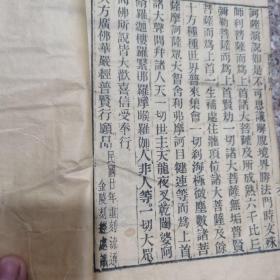 訶薩演說如是不可思議解脫境界勝法門時文殊
師利菩薩而為上首諸大菩薩及所成熟六千比丘
彌勒菩薩而為上首賢劫一切諸大菩薩無垢普賢
菩薩而為上首一生補處住灌頂位諸大菩薩及餘
十方種種世界普來集會一切剎海極微塵數諸菩
薩摩訶薩眾大智舍利弗摩訶目犍連等而為上首
諸大聲聞并諸人天一切世主天龍夜叉乾闥婆阿
修羅迦樓羅緊那羅摩睺羅伽人非人等一切大眾
聞佛所說皆大歡喜信受奉行
大方廣佛華嚴經普賢行願品
民國廿年重刻流通
金陵刻經處識